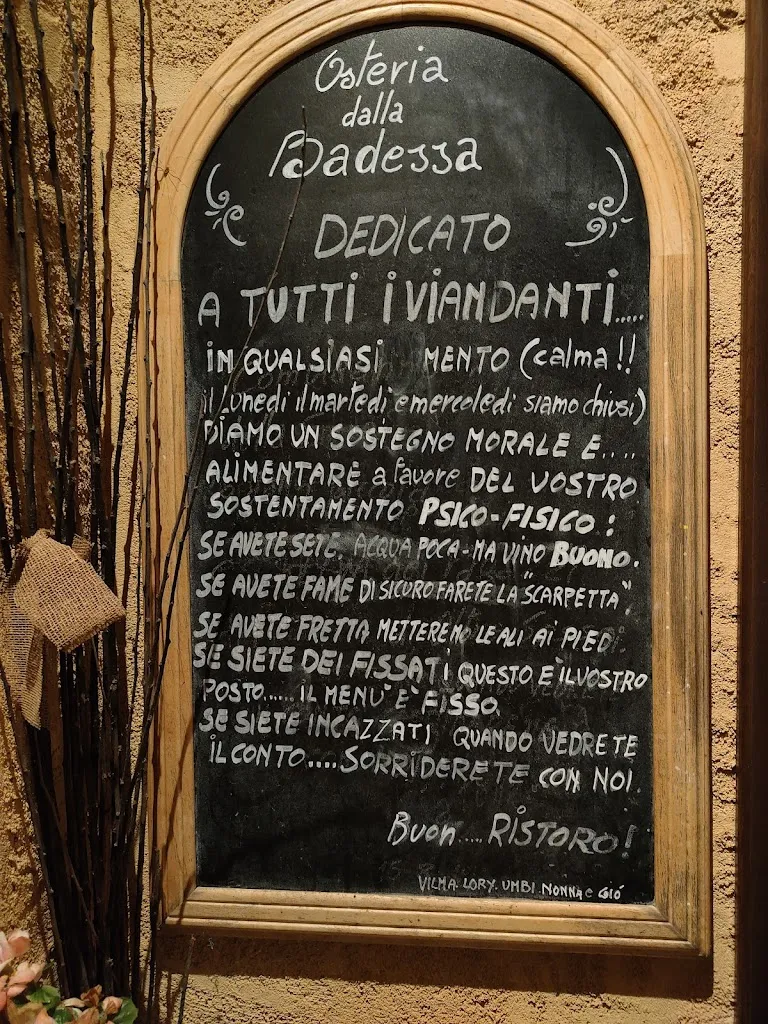 Osteria
dalla
Badessa
DEDICATO
A TUTTI i VIANDANTI.....
iN QUALSIASI MENTO (calma!!
il Lunedì il martedì e mercoledì siamo chiusi)
DIAMO UN SOSTEGNO MORALE E....
ALIMENTARE a favore DEL VOSTRO
SOSTENTAMENTO PSICO-FISICO:
SE AVETE SETE, ACQUA POCA-MA VINO BUONO.
SE AVETE FAME DI SICURO FARETE LA "SCARPETTA".
SE AVETE FRETTA METTEREMO LE ALI AI PIEDI.
SE SIETE DEI FISSATI QUESTO E' IL VOSTRO
POSTO..... IL MENU' E' FISSO.
SE SIETE INCAZZATI QUANDO VEDRETE
IL CONTO.... SORRIDERETE CON NOI.
Buon.... RISTORO!
VILMA. LORY. UMBI. NONNA e Gió